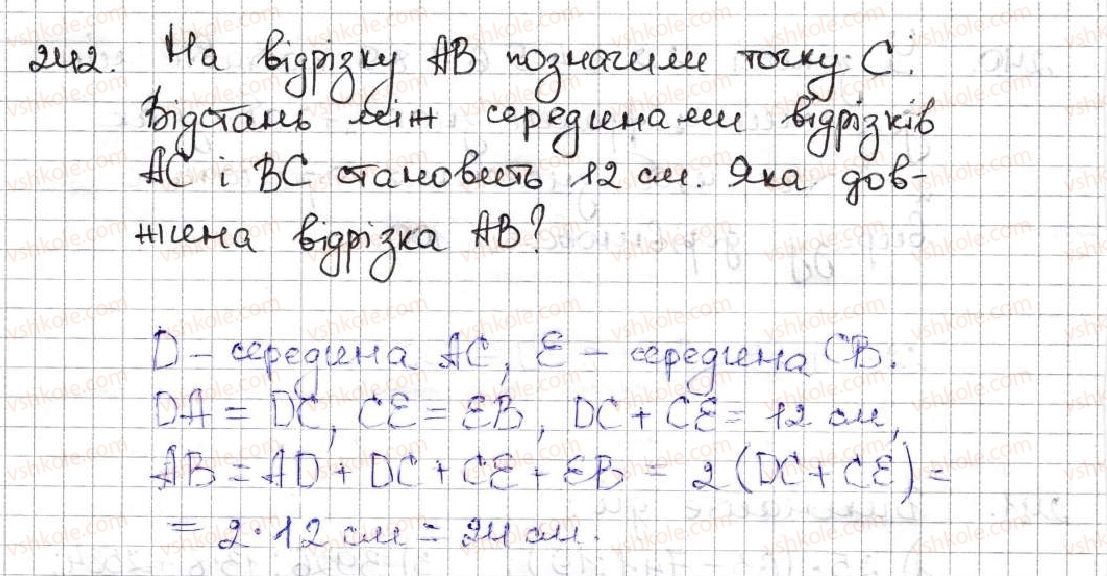 242. На відрізку AB позначили точку C.
Відстань між серединами відрізків
AC і BC становить 12 см. Яка дов-
жина відрізка AB?
D – середина AC, E – середина CB.
DA = DC, CE = EB, DC + CE = 12 см,
AB = AD + DC + CE + EB = 2 (DC + CE) =
= 2 · 12 см = 24 см.